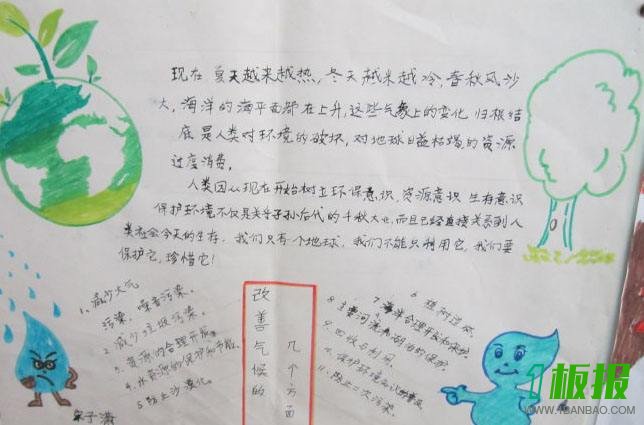 现在夏天越来越热,冬天越来越冷,春秋风沙
大,海洋的海平面都在上升,这些气象上的变化归根结
底是人类对环境的破坏,对地球日益枯竭的资源
过度消费。
人类因从现在开始树立环保意识,资源意识 生存意识
保护环境不仅是关乎子孙后代的千秋大业,而且已经直接关系到人
类社会今天的生存,我们只有一个地球,我们不能只利用它,我们要
保护它,珍惜它!
改善气候的
几个方面
1、减少大气
污染,噪音污染。
2、减少垃圾污染。
3、资源的合理开发。
4、水资源的保护和节能。
5、防止沙漠化。
6、
7、海洋合理开发和保护。
8、主要河流和湖泊的保护。
9、回收与利用。
10、保护环境
11、防止二次污染。
子涛
1板报
WWW.1BANBAO.COM